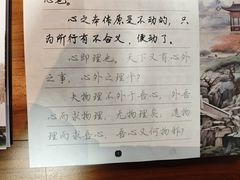 心也。
心之本体原是不动的，只
为所行有不合义，便动了。
心即理也。天下又有心外
之事，心外之理乎？
夫物理不外于吾心，外吾
心而求物理，无物理矣；遗物
理而求吾心，吾心又何物邪？